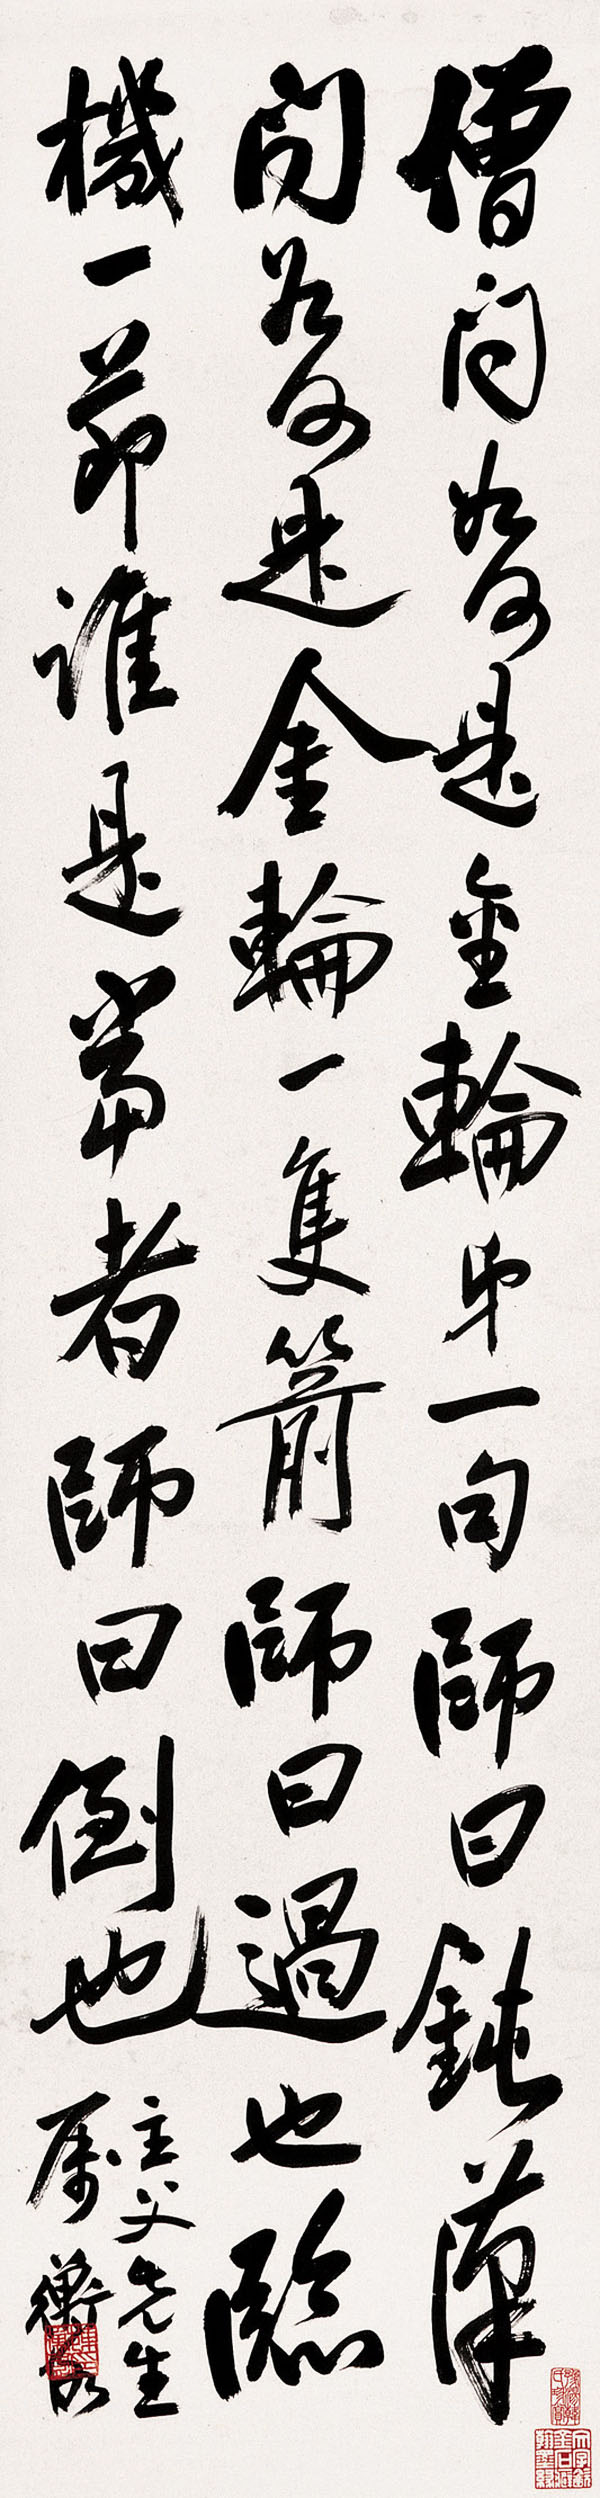 僧問如何是金輪第一句師曰鈍漢
問如何是金輪一隻箭師曰過也臨
機一箭誰是當者師曰倒也
主父先生
属 衡恪